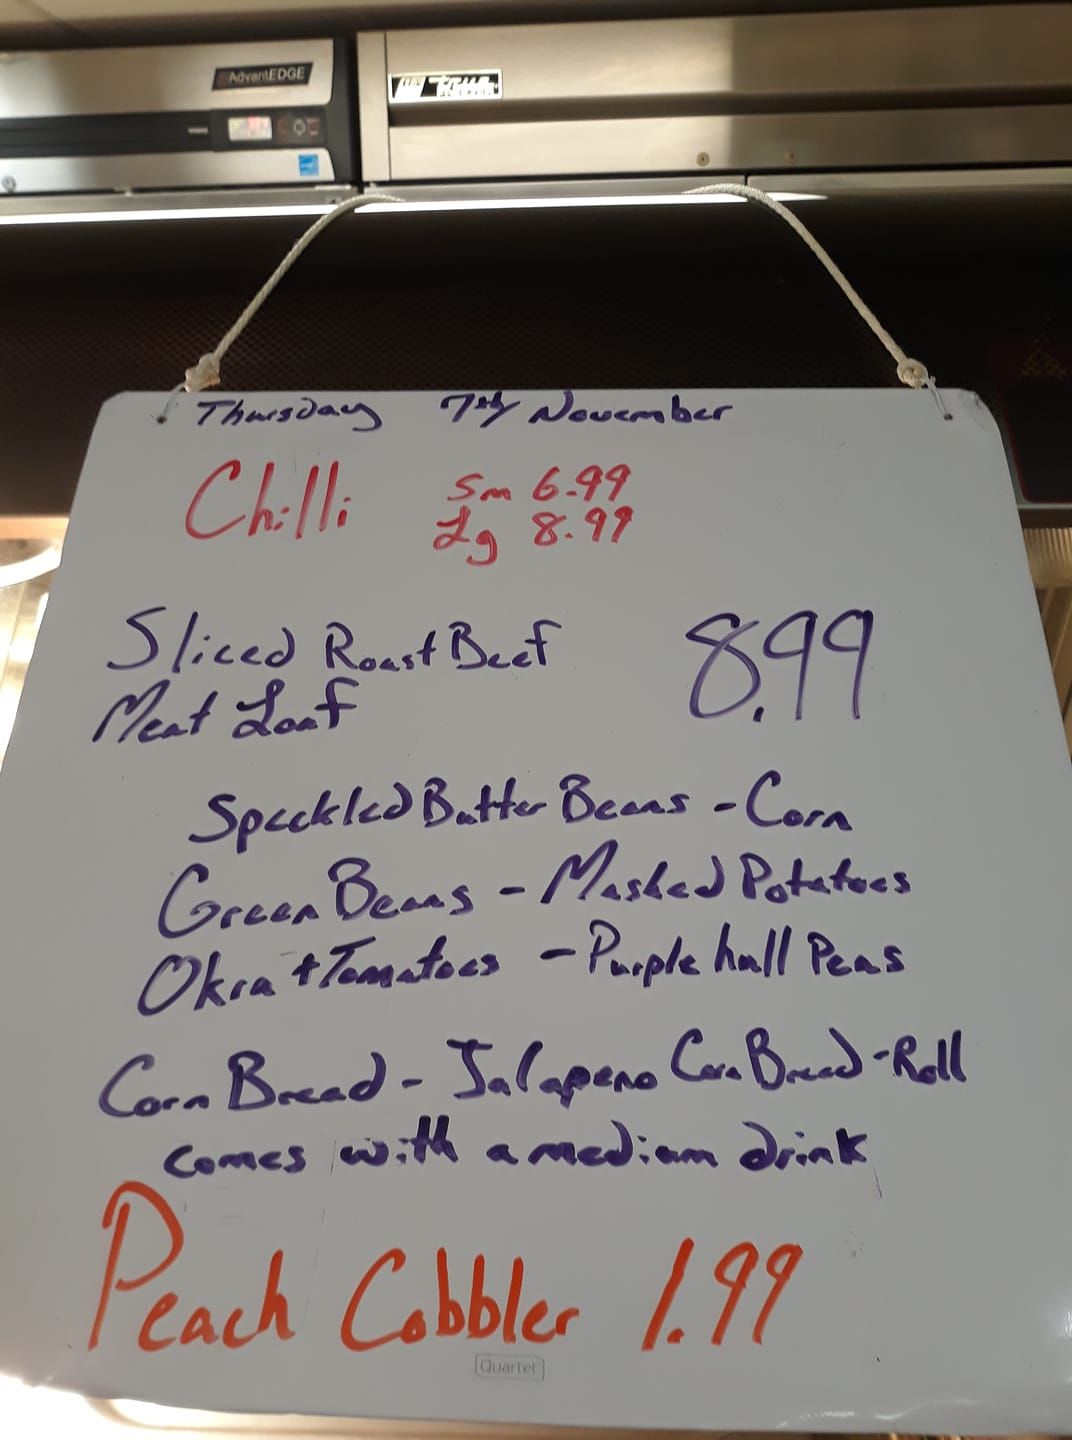 AdvantEDGE
True
Thursday 7th November
Chilli Sm 6.99
Lg 8.99
Sliced Roast Beef 8.99
Meat Loaf
Speckled Butter Beans - Corn
Green Beans - Mashed Potatoes
Okra + Tomatoes - Purple hull Peas
Corn Bread - Jalapeno Corn Bread - Roll
comes with a medium drink
Peach Cobbler 1.99
Quartet